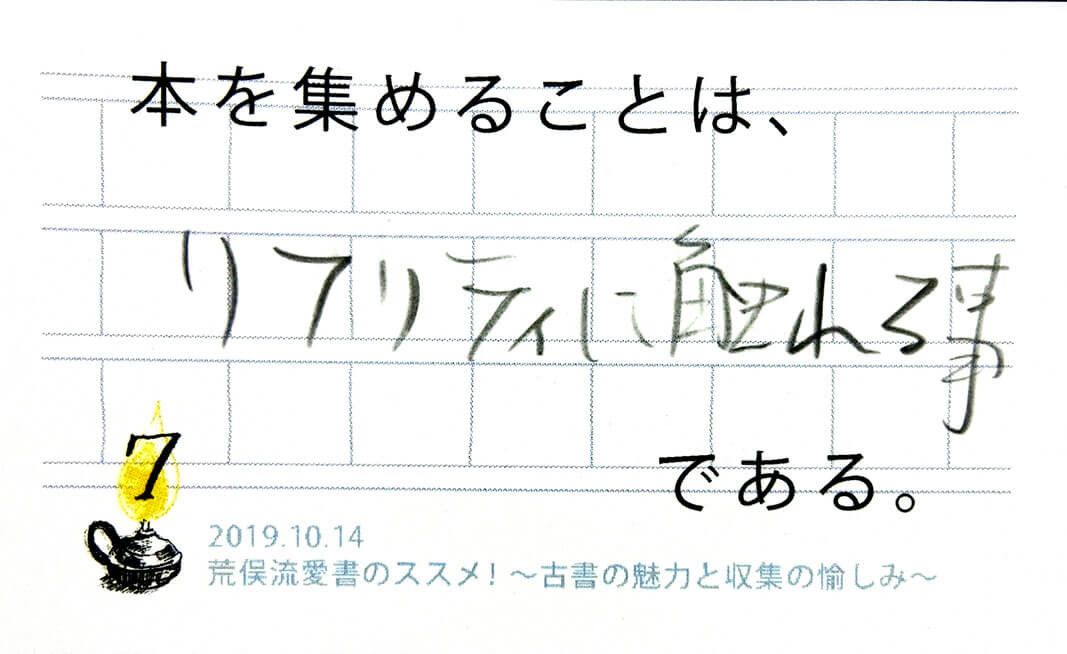 本を集めることは、
リフリティに触れる事
である。
7
2019.10.14
荒俣流愛書のススメ!～古書の魅力と収集の愉しみ～